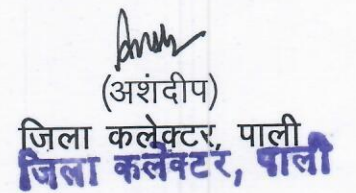 (अशंदीप)
जिला कलेक्टर, पाली
जिला कलेक्टर, पाली